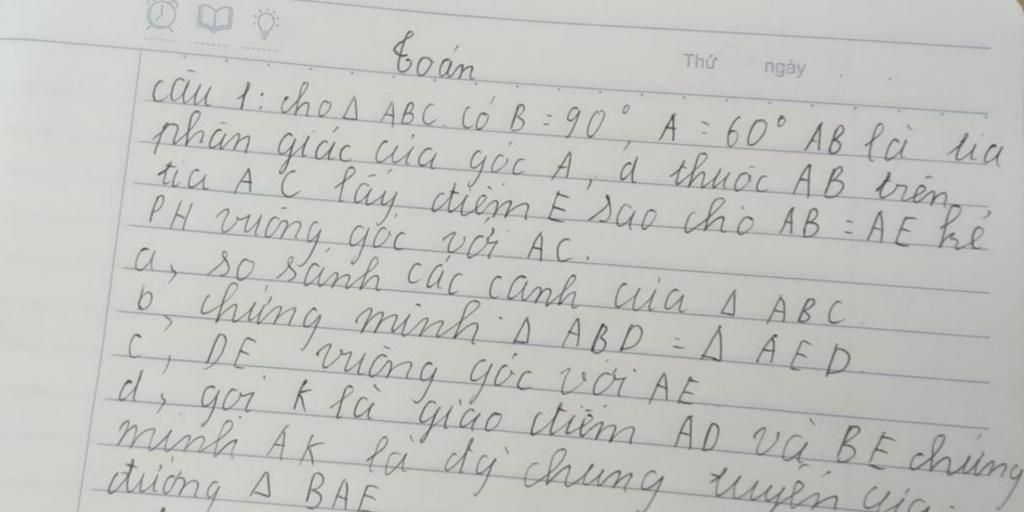 Thứ ngày
toán
câu 1: cho Δ ABC có B = 90°, A = 60° AB là tia
phân giác của góc A, d thuộc AB trên
tia AC lấy điểm E sao cho AB = AE kẻ
PH vuông góc với AC.
a, so sánh các cạnh của Δ ABC
b, chứng minh Δ ABD = Δ AED
c, DE vuông góc với AE
d, gọi K là giao điểm AD và BE chứng
minh AK là đg chung tuyến
đường Δ BAE